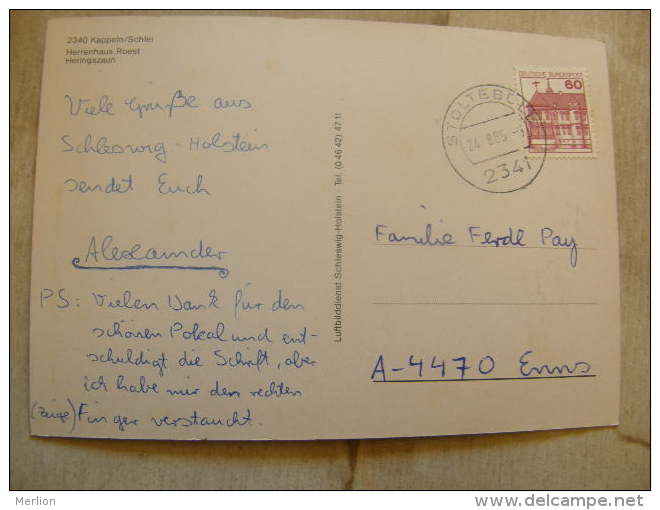 2340 Kappeln/Schlei
Herrenhaus Roest
Heringszaun
Viele Grüße aus
Schleswig-Holstein
sendet Euch
Alexander
PS: Vielen Dank für den
schönen Pokal und ent-
schuldigt die Schrift, aber
ich habe mir den rechten
(Zeige) Finger verstaucht.
Luftbilddienst Schleswig-Holstein Tel. (0 46 42) 47 11
STOLTEBÜLL
2341
DEUTSCHE BUNDESPOST
60
Familie Ferdl Pay
A-4470 Enns
Merlion
www.delcampe.net